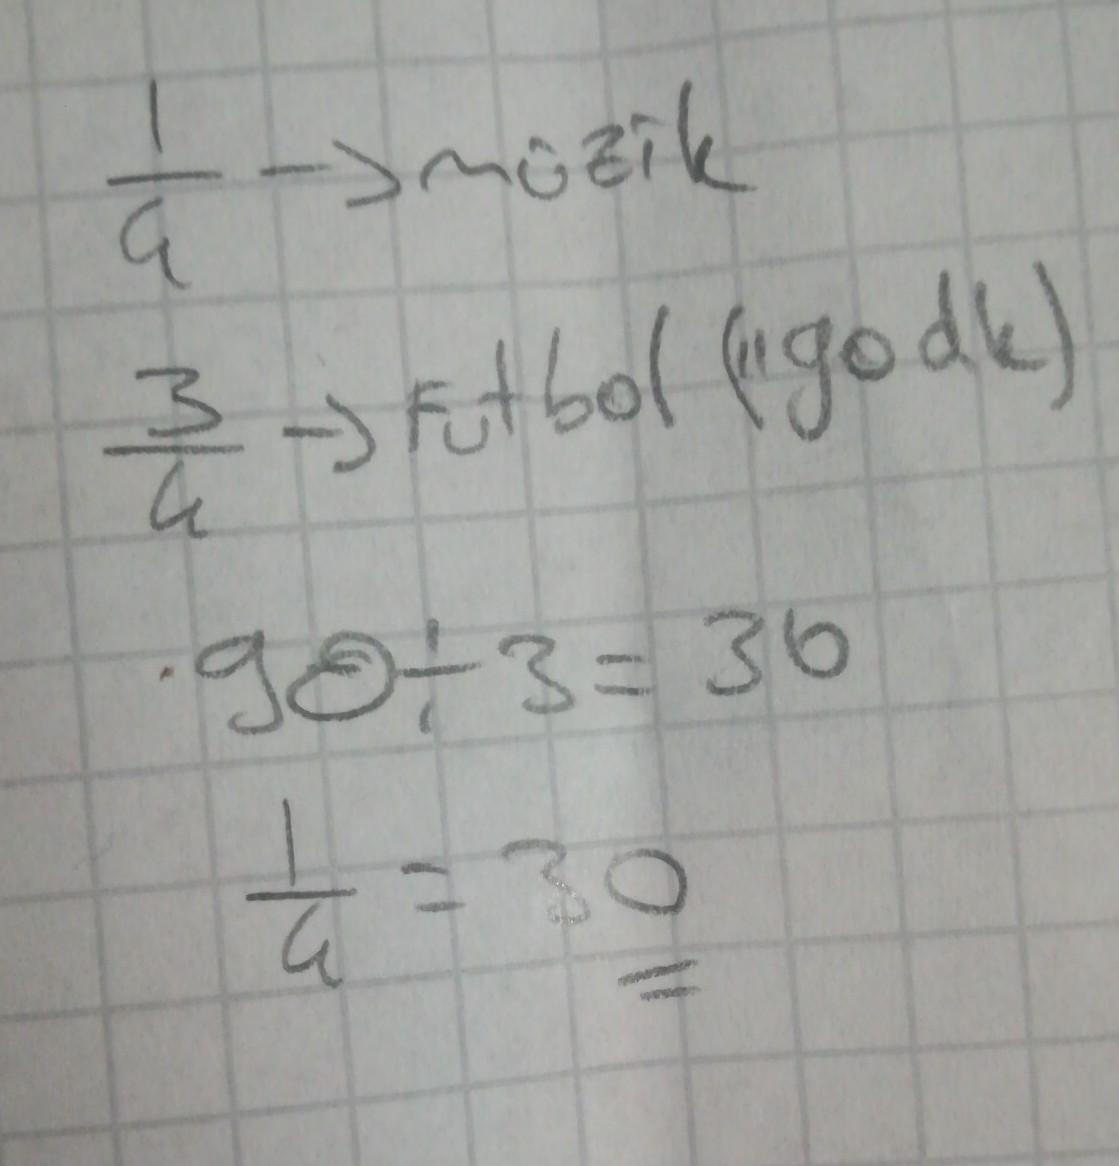 1/4 -> müzik
3/4 -> Futbol ("90 dk)
90 ÷ 3 = 30
1/4 = 30